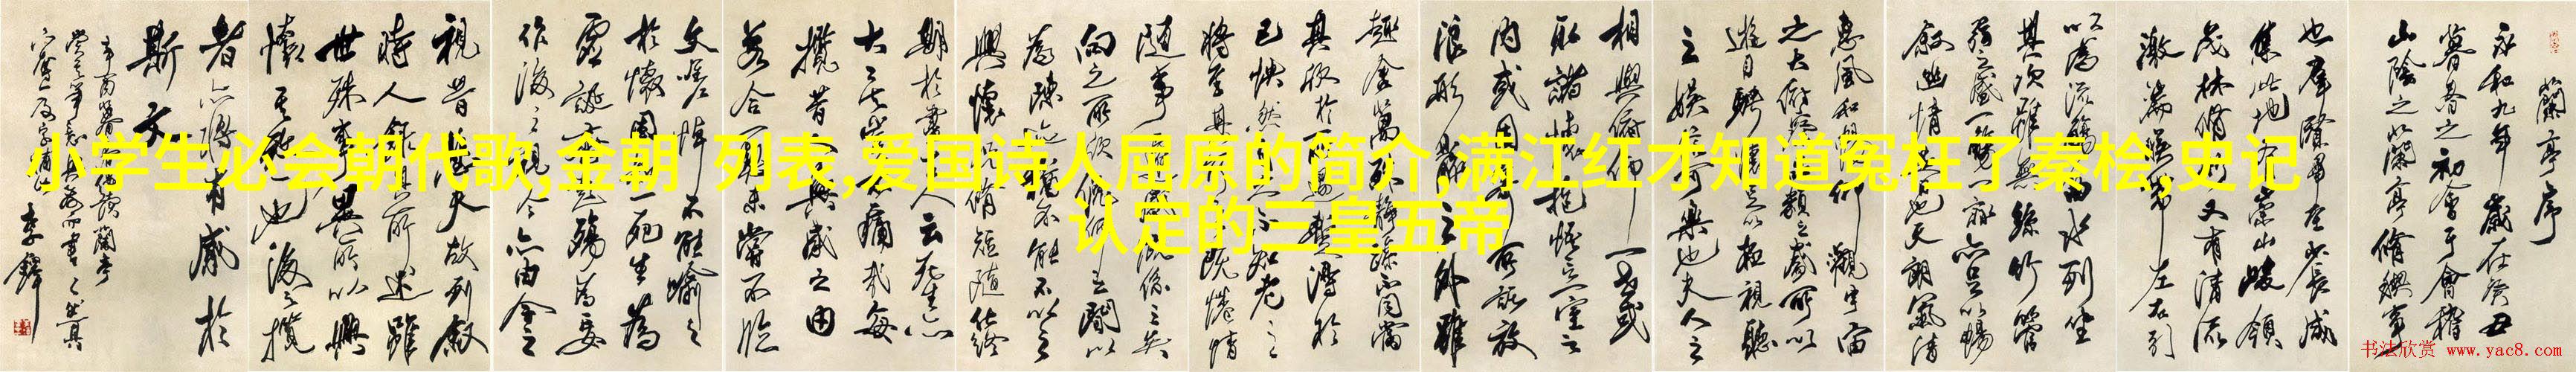 蘭亭序
永和九年歲在癸丑
暮春之初會于會稽
山陰之蘭亭脩禊事
也羣賢畢至少長咸
集此地有崇山峻領
茂林脩竹又有清流
激湍暎帶左右引
以為流觴曲水列坐
其次雖無絲竹管
弦之盛一觴一詠亦足以暢
敘幽情是日也天朗氣清
惠風和暢仰觀宇宙
之大俯察品類之盛所以
遊目騁懷足以極視聽
之娛信可樂也夫人之
相與俯仰一世或
取諸懷抱悟言一室之
內或因寄所託放
浪形骸之外雖
趣舍萬殊靜躁不同當
其欣於所遇暫得於
己快然自足不知老之
將至及其所之既惓情
隨事遷感慨係之矣
向之所欣俛仰之間以
為陳迹猶不能不以之
興懷況脩短隨化終
期於盡古人云死生亦
大矣豈不痛哉每
攬昔人興感之由
若合一契未嘗不臨
文嗟悼不能喻之
於懷固知一死生為
虛誕齊彭殤為妄
作後之視今亦由今之
視昔悲夫故列敘
時人錄其所述雖
世殊事異所以興
懷其致一也後之攬
者亦將有感於
斯文
李鐸
小学生必会朝代歌,金朝 列表,爱国诗人屈原的简介,满江红才知道冤枉了秦桧,史记
认定的三皇五帝
书法欣赏 www.yac8.com